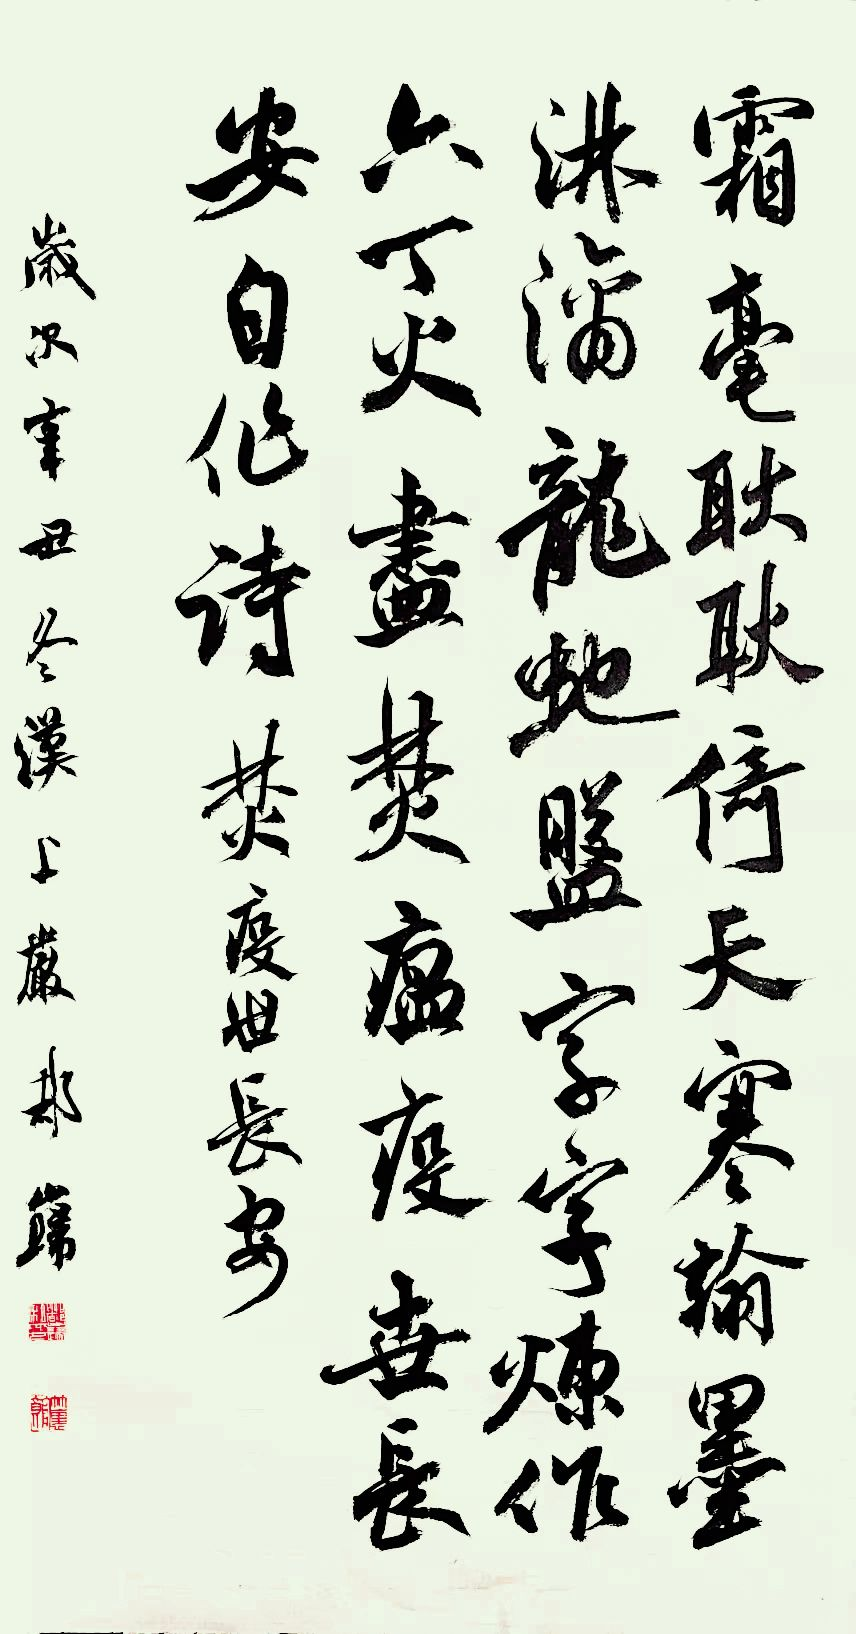 霜毫耿耿倚天寒翰墨
淋漓龍蛇盤字字煉作
六丁火盡焚瘟疫世長
安自作詩焚疫世長安
歲次辛丑冬漢上嚴邦